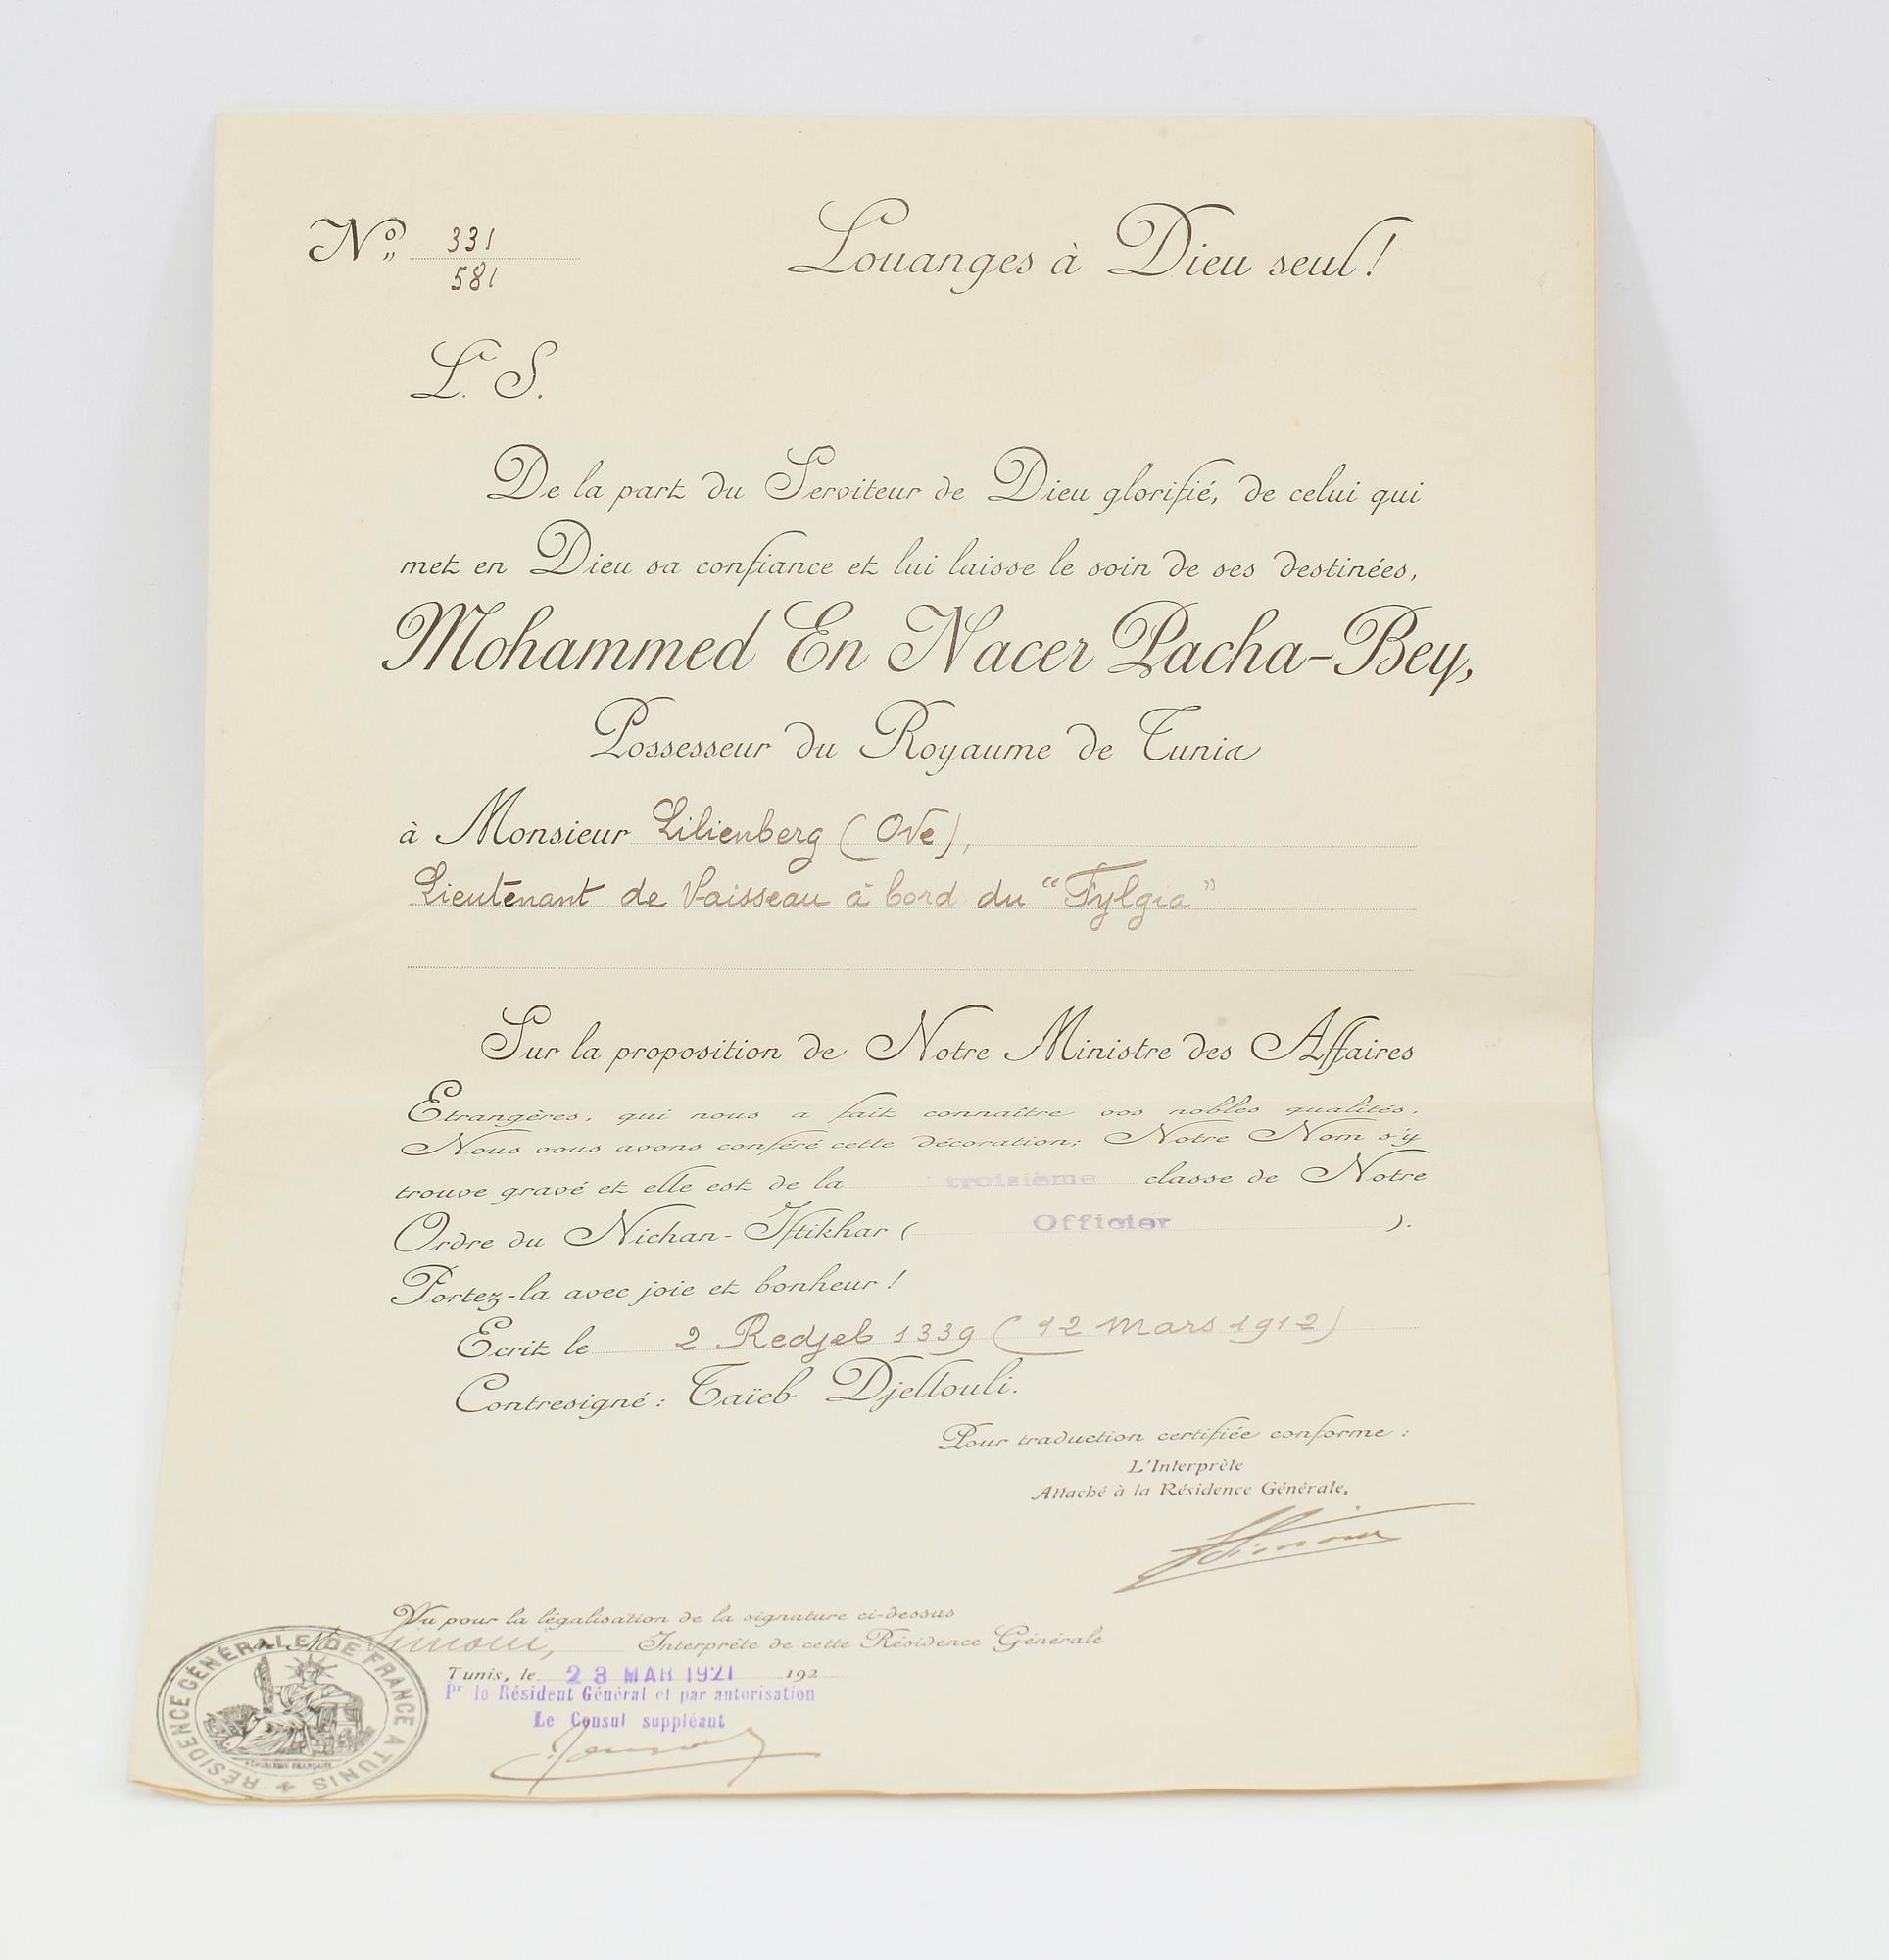 N° 331
581
Louanges à Dieu seul!
L. S.
De la part du Serviteur de Dieu glorifié, de celui qui
met en Dieu sa confiance et lui laisse le soin de ses destinées,
Mohammed En Nacer Pacha-Bey,
Possesseur du Royaume de Tunis
à Monsieur Lilienberg (Ove),
Lieutenant de Vaisseau à bord du "Fylgia"
Sur la proposition de Notre Ministre des Affaires
Etrangères, qui nous a fait connaître vos nobles qualités,
Nous vous avons conféré cette décoration; Notre Nom s'y
trouve gravé et elle est de la troisième classe de Notre
Ordre du Nichan-Iftikhar ( Officier ).
Portez-la avec joie et bonheur!
Ecrit le 2 Redjeb 1339 (12 Mars 1912)
Contresigné: Taïeb Djellouli.
Pour traduction certifiée conforme:
L'Interprète
Attaché à la Résidence Générale,
Vu pour la légalisation de la signature ci-dessus
de M. Simoni, Interprète de cette Résidence Générale
Tunis, le 23 MAR 1921 192
Pr le Résident Général et par autorisation
Le Consul suppléant
RÉSIDENCE GÉNÉRALE DE FRANCE A TUNIS